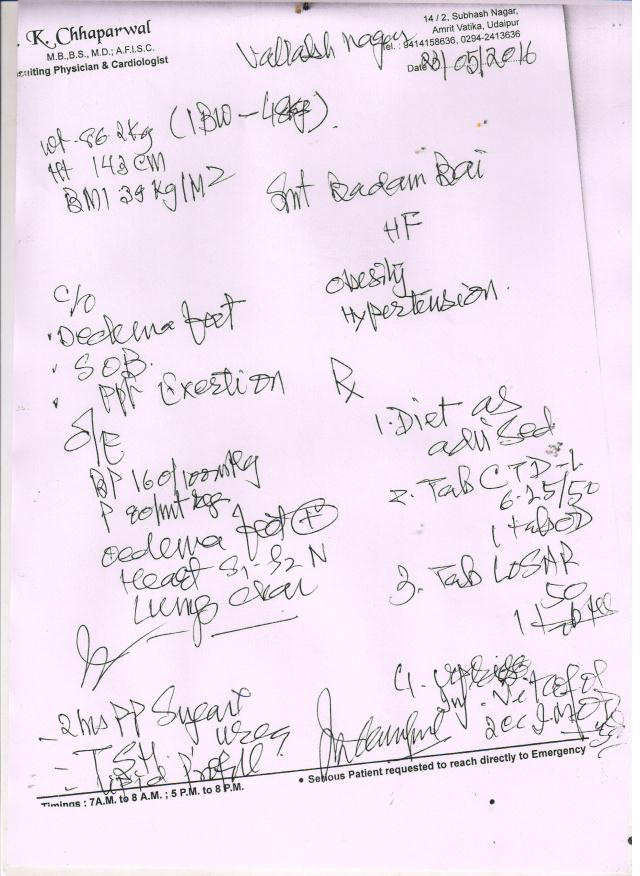 . K. Chhaparwal
M.B.,B.S., M.D.; A.F.I.S.C.
Physician & Cardiologist
14 / 2, Subhash Nagar,
Amrit Vatika, Udaipur
Tel. : 9414158636, 0294-2413636
Nagar
Date 23/05/2016
Wt-86.2Kg (IBW-48Kg).
Ht 143 CM
BMI 39 Kg/M2
Smt Badam Bai
HF
Obesity
Hypertension.
C/o
Oedema feet
SOB
Exertion
O/E
BP 160/100mmHg
P 80/mt
Oedema feet +
Heart S1-S2 N
Lungs clear
Rx
1. Diet as
advised
2. Tab CTD-L
6.25/50
1 tab OD
3. Tab LOSAR
50
1 tab
4.
Inj.
2cc IM OD
- 2hrs PP Sugar
urea
- TSH
- Lipid Profile
Timings : 7A.M. to 8 A.M. ; 5 P.M. to 8 P.M.
• Serious Patient requested to reach directly to Emergency